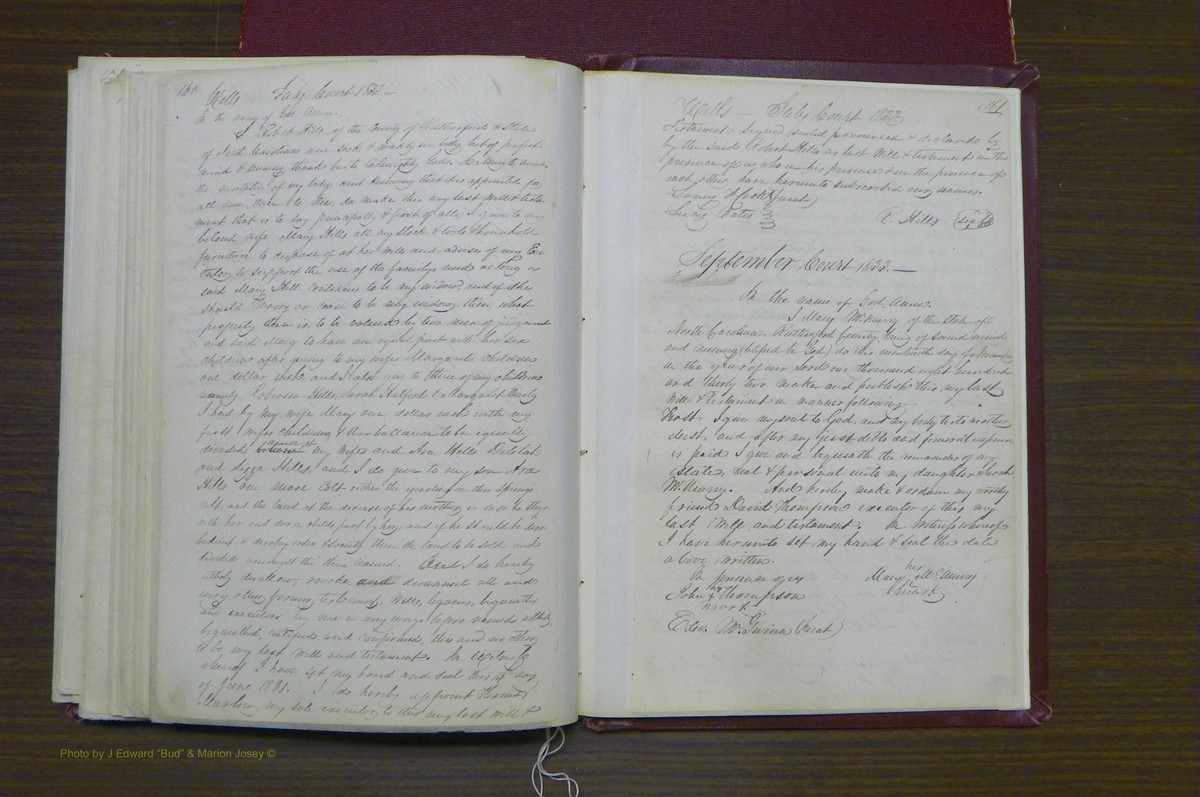 160
Wills — July Court 1833 —
In the name of God Amen.
I Robert Hills, of the County of Rutherford & State
of North Carolina and sick & weakly in body, but of perfect
mind & memory thanks be to Almighty God. Calling to mind
the mortality of my body and knowing that it is appointed for
all men once to die, do make this my last will & testa
ment that is to say principally & first of all, I give to my
beloved wife Mary Hills all my stock & tools & household
furniture to dispose of at her will and advise of my Exe
cutor to support the use of the family and as long as
said Mary Hill continues to be my widow and if she
should marry or cease to be my widow, then what
property there is, to be valued by two men of judgment
and said Mary to have an equal part with her six
children after giving to my wife Margarets children
one dollar each, and I also give to three of my children
namely Hills, Sarah Halford & Margaret
I had by my wife Mary one dollar each with my
first wifes children & the ballance to be equally
devided amongst my wife and Asa Hills, Delilah
and Hills and I do give to my son Asa
Hills one mare Colt either the yearling or this springs
colt, and the land at the decease of his mother, in case he stays
with her and does a childs part by her, and if he should be diso
bedient & then the land to be sold and
divided amongst the three named. And I do hereby
utterly disallow, revoke and disannul all and
every other former testament, Wills, legacies, bequeaths
and executors by me in any ways before named willed
bequeathed, ratifying and confirming this and no other
to be my last will and testament. In Witness
whereof I have set my hand and seal this day
of June 1831. I do hereby appoint Thomas
my sole executor, to this my last will &
161
Wills — July Court 1833
Testament Signed sealed pronounced & declared by
by the said Robert Hills as last Will & testament in the
presence of us who in his presence & in the presence of
each other, have hereunto subscribed our names.
(Jurat)
Bates
R. Hills (seal)
September Court 1833. —
In the name of God, Amen.
I Mary McKurry of the State of
North Carolina Rutherford County, being of sound mind
and memory (blessed be God) do this day of
in the year of our Lord one thousand eight hundred
and thirty two make and publish this my last
Will & Testament in manner following
First. I give my soul to God, and my body to its mother
dust, and after my just debts and funeral expences
is paid I give and bequeath the remainder of my
estate, real & personal unto my daughter Sarah
McKurry. And hereby make & ordain my worthy
friend David Thompson executor of this my
last Will and testament. In Witness whereof
I have hereunto set my hand & seal the date
above written.
In presence of us
Mary her McKurry
mark
John his x Thompson
mark
Edw. McGuinn (Jurat)
Photo by J Edward "Bud" & Marion Josey ©